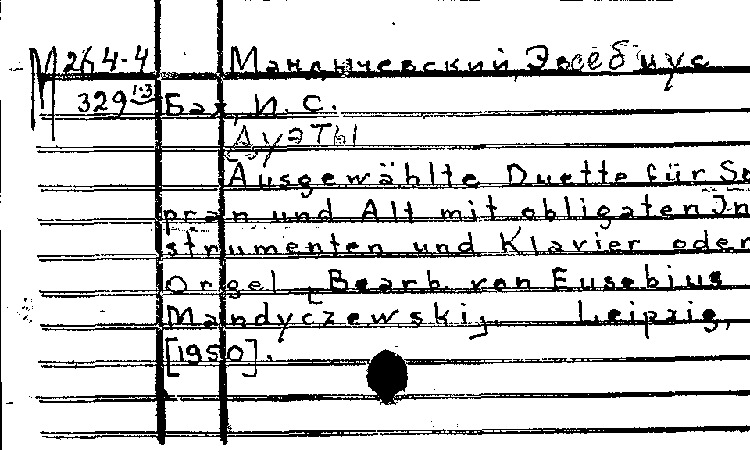 М 264-4 Мандычевский, Эвсебиус
329 1-3 Бах, И. С.
Дуэты
Ausgewählte Duette für So
pran und Alt mit obligaten In
strumenten und Klavier oder
Orgel [Bearb. von Eusebius
Mandyczewski]. Leipzig,
[1950].